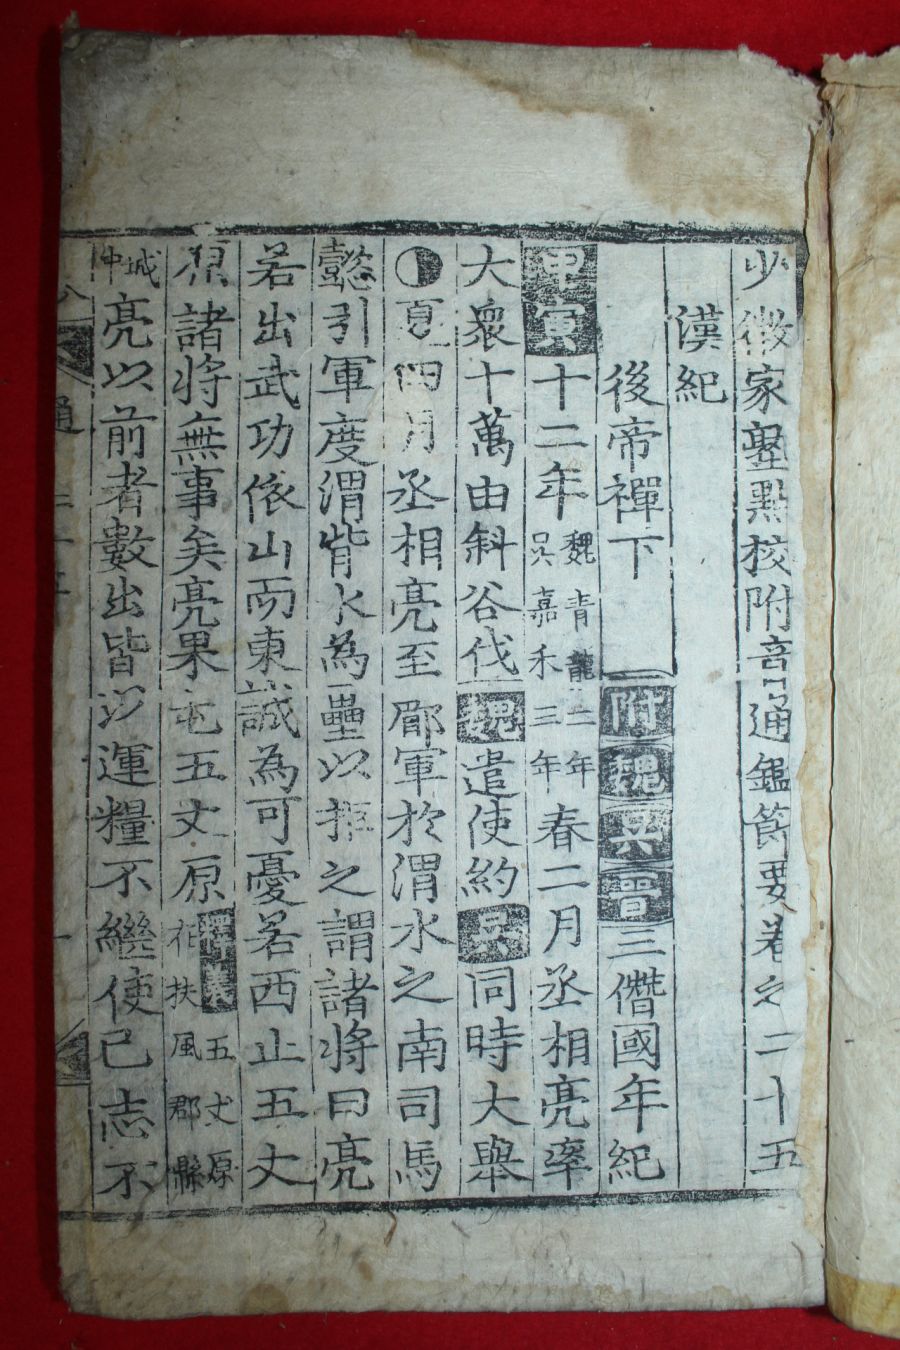 少微家塾點校附音通鑑節要卷之二十五
漢紀
後帝禪下 附魏吳晉三僭國年紀
甲寅十二年魏青龍二年吳嘉禾三年春二月丞相亮率
大衆十萬由斜谷伐魏遣使約吳同時大擧
夏四月丞相亮至郿軍於渭水之南司馬
懿引軍度渭背水為壘以拒之謂諸將曰亮
若出武功依山而東誠為可憂若西止五丈
原諸將無事矣亮果屯五丈原釋義五丈原在扶風郡縣
城中亮以前者數出皆以運糧不繼使己志不
通